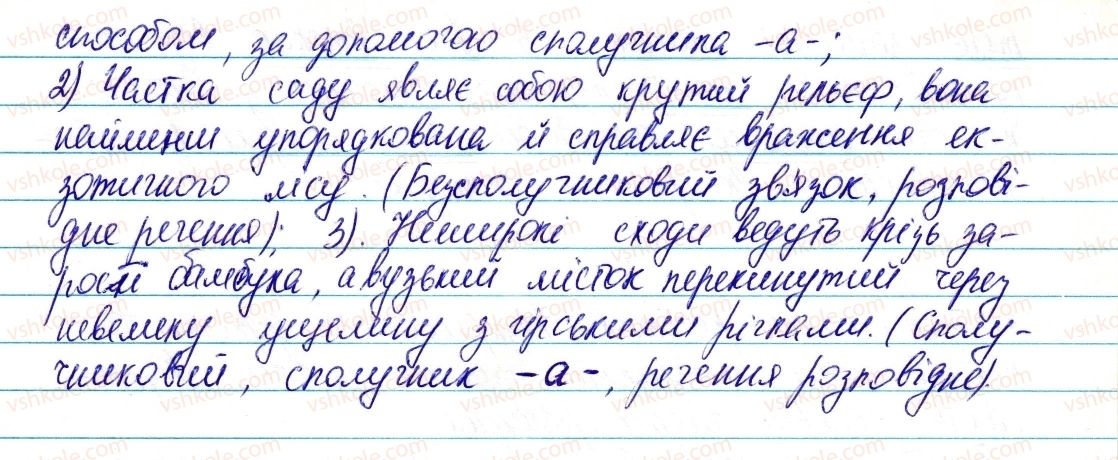 способом, за допомогао сполучника -а-;
2) Частка саду являє собою крутий рельєф, вона
найменш упорядкована й справляє враження ек-
зотичного лісу. (Безсполучниковий зв'язок, розпові-
дне речення); 3). Неширокі сходи ведуть крізь за-
рості бамбука, а вузький місток перекинутий через
невелику ущелину з гірськими річками. (Сполу-
чниковий, сполучник -а-, речення розповідне).